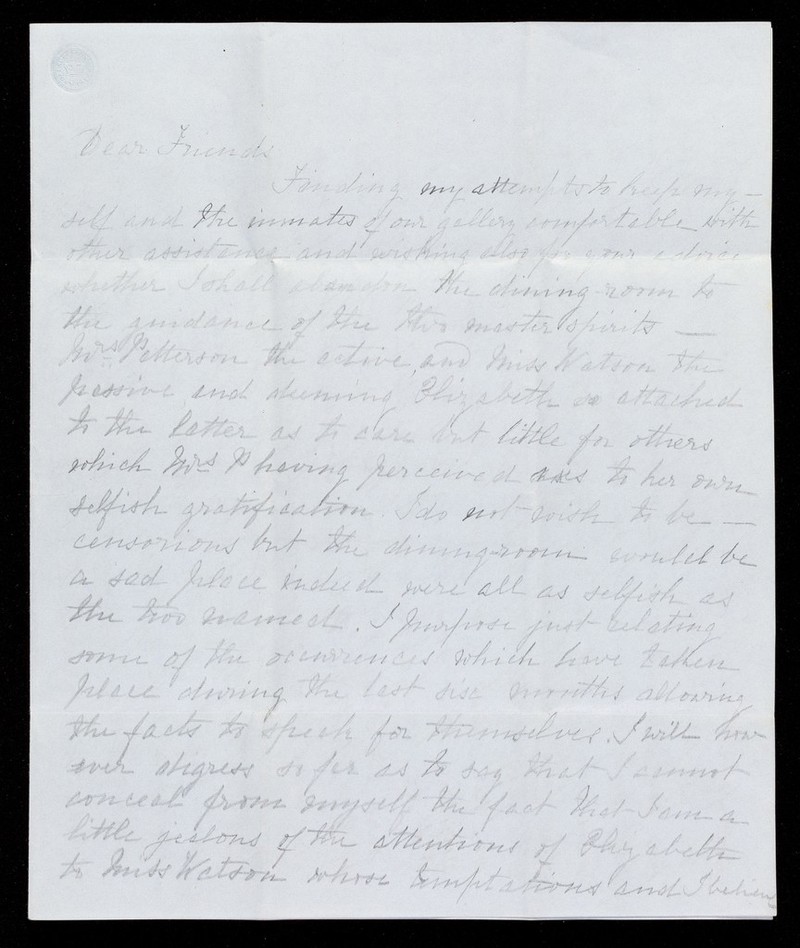 Dear Friends
Finding my attempts to keep my-
self and the inmates of our gallery comfortable with
other assistance and wishing also for your advice
whether I shall abandon the dining-room to
the guidance of the two master spirits —
Mrs Patterson the active, and Miss Watson the
passive and deeming Elizabeth so attached
to the latter as to care but little for others
which Mrs P having perceived uses to her own
selfish gratification. I do not wish to be —
censorious but the dining-room would be
a sad place indeed were all as selfish as
the two named. I purpose just relating
some of the occurrences which have taken
place during the last six months allowing
the facts to speak for themselves. I will how
ever digress so far as to say that I cannot
conceal from myself the fact that I am a
little jealous of the attentions of Elizabeth
to Miss Watson whose temptations and I believe